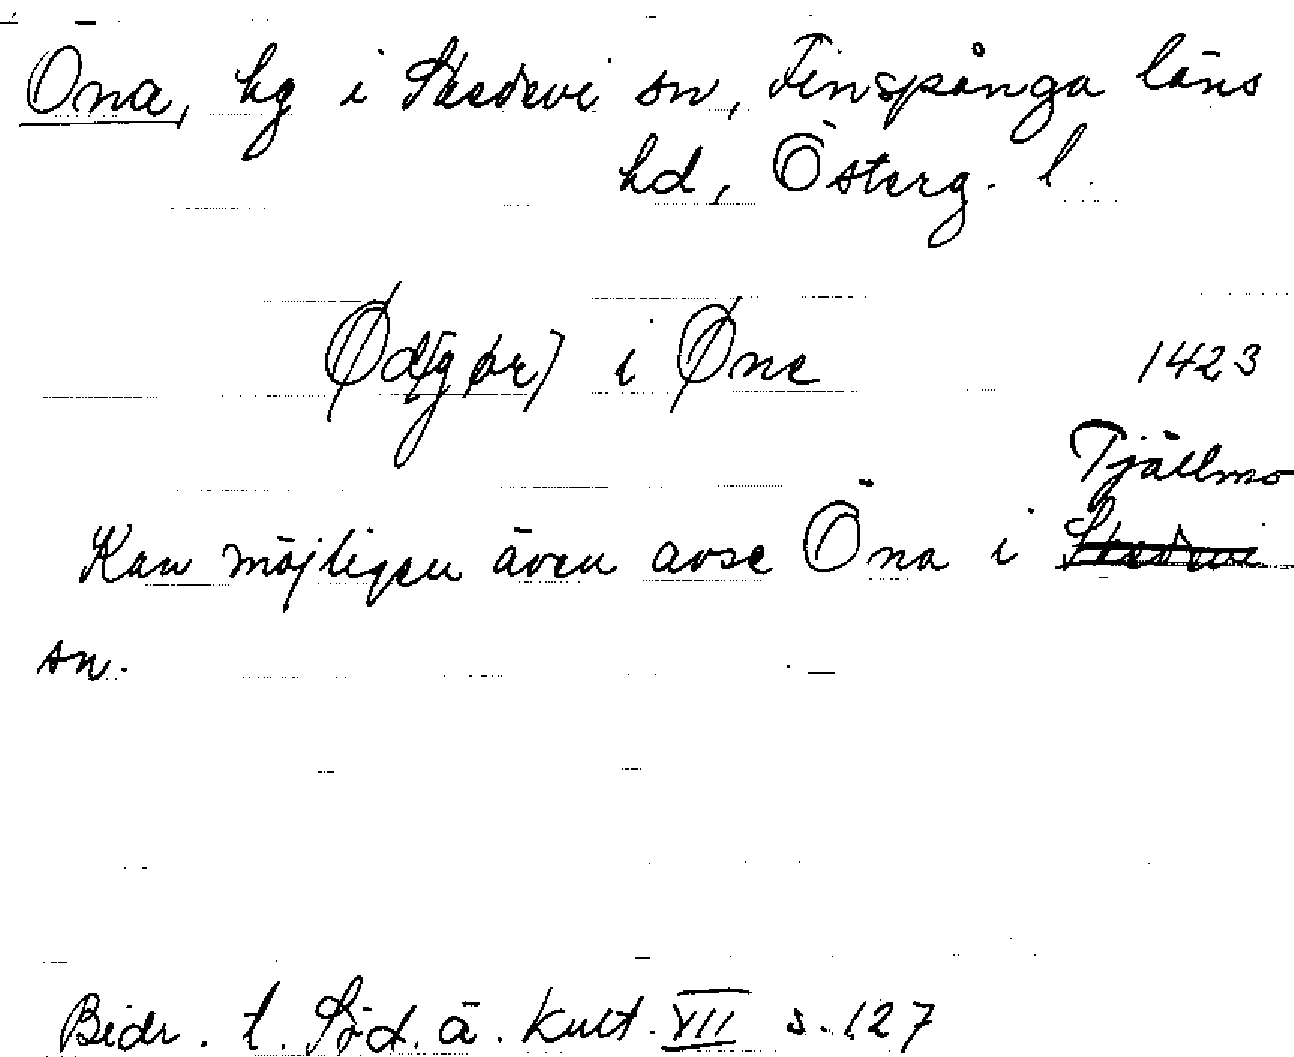 Öna, hg i Skedevi sn, Finspånga läns
hd, Österg. l.
Ød[gør] i Øne 1423
Tjällmo
Kan möjligen även avse Öna i Skedevi
sn.
Bidr. t. Söd. ä. Kult. VII s. 127